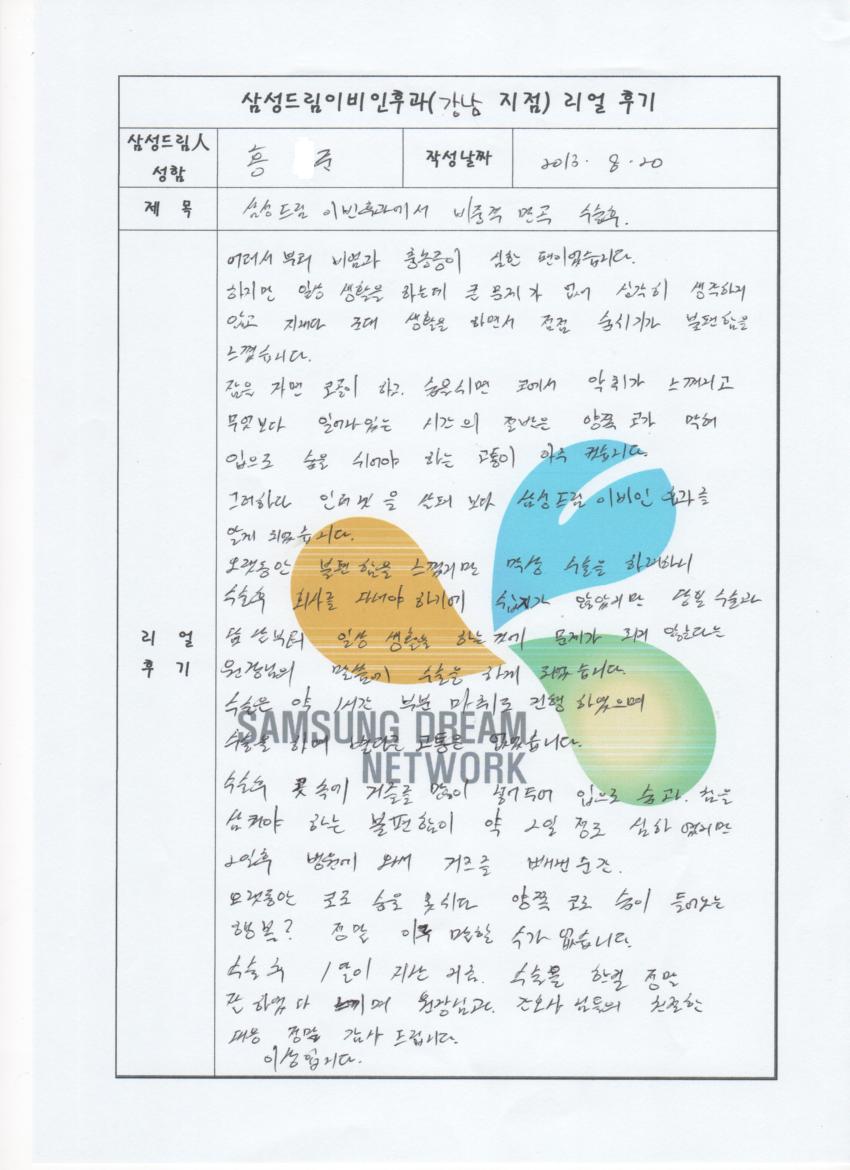 삼성드림이비인후과(강남 지점) 리얼 후기
삼성드림人 성함 홍 준 작성날짜 2013. 8. 20
제 목 삼성드림 이빈후과에서 비중격 만곡 수술후.
리 얼 후 기
어려서 부터 비염과 축농증이 심한 편이었습니다.
하지만 일상 생활을 하는데 큰 문제가 없어 심각히 생각하지
않고 지내다 군대 생활을 하면서 점점 숨쉬기가 불편함을
느꼈습니다.
잠을 자면 코골이 하고. 숨을쉬면 코에서 악취가 느껴지고
무엇보다 일어나있는 시간의 절반은 양쪽 코가 막혀
입으로 숨을 쉬어야 하는 고통이 아주 컸습니다.
그러하다 인터넷 을 살펴 보다 삼성드림 이비인 후과를
알게 되었습니다.
오랫동안 불편함을 느꼈지만 막상 수술을 하려하니
수술후 회사를 다녀야 하기에 쉽지가 않았지만 당일 수술과
담 날부터 일상 생활을 하는 것에 문제가 되지 않는다는
원장님의 말씀에 수술을 하게 되었습니다.
수술은 약 1시간 부분 마취로 진행 하였으며
수술을 하며 별다른 고통은 없었습니다.
수술후 콧 속에 거즈를 많이 넣어 두어 입으로 숨과. 침을
삼켜야 하는 불편함이 약 2일 정도 심하 였지만
2일후 병원에 와서 거즈를 빼낸 순간.
오랫동안 코로 숨을 못쉬다 양쪽 코로 숨이 들어오는
행복? 정말 이루 말할 수가 없습니다.
수술 후 1달이 지난 지금. 수술을 한걸 정말
잘 하였다 느끼며 원장님과. 간호사 님들의 친절한
대응 정말 감사 드립니다.
이상입니다.
SAMSUNG DREAM
NETWORK